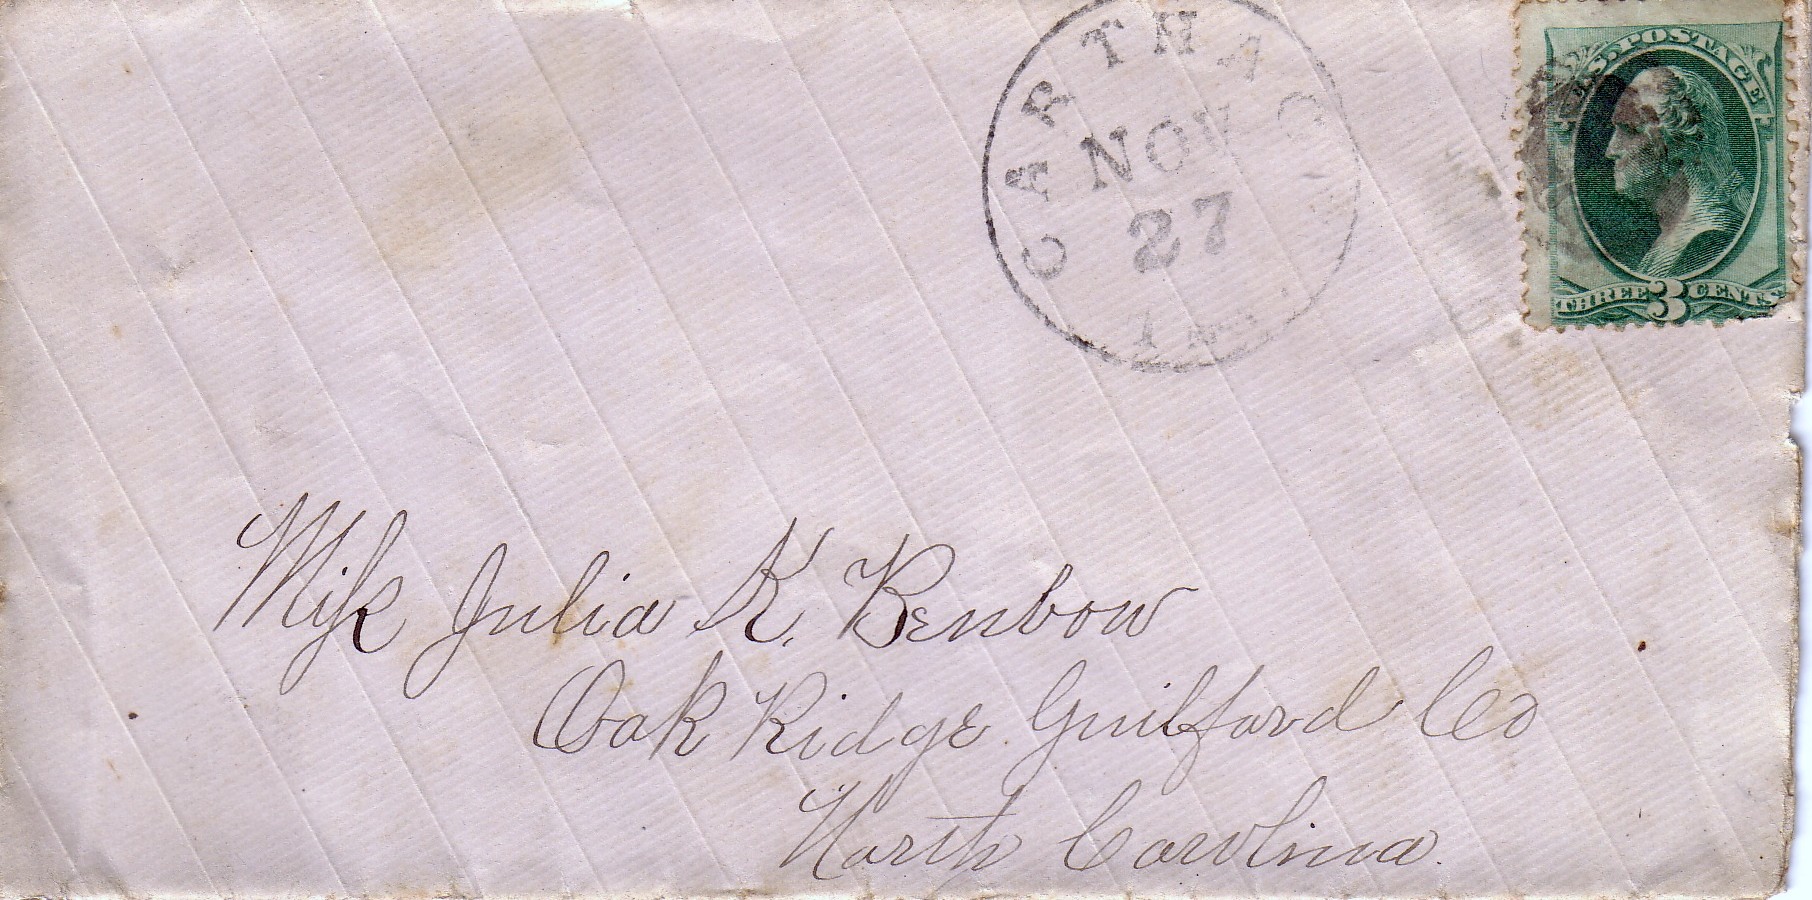 CARTHAG
NOV
27
U.S. POSTAGE
THREE 3 CENTS
Miss Julia K. Benbow
Oak Ridge Guilford Co
North Carolina.